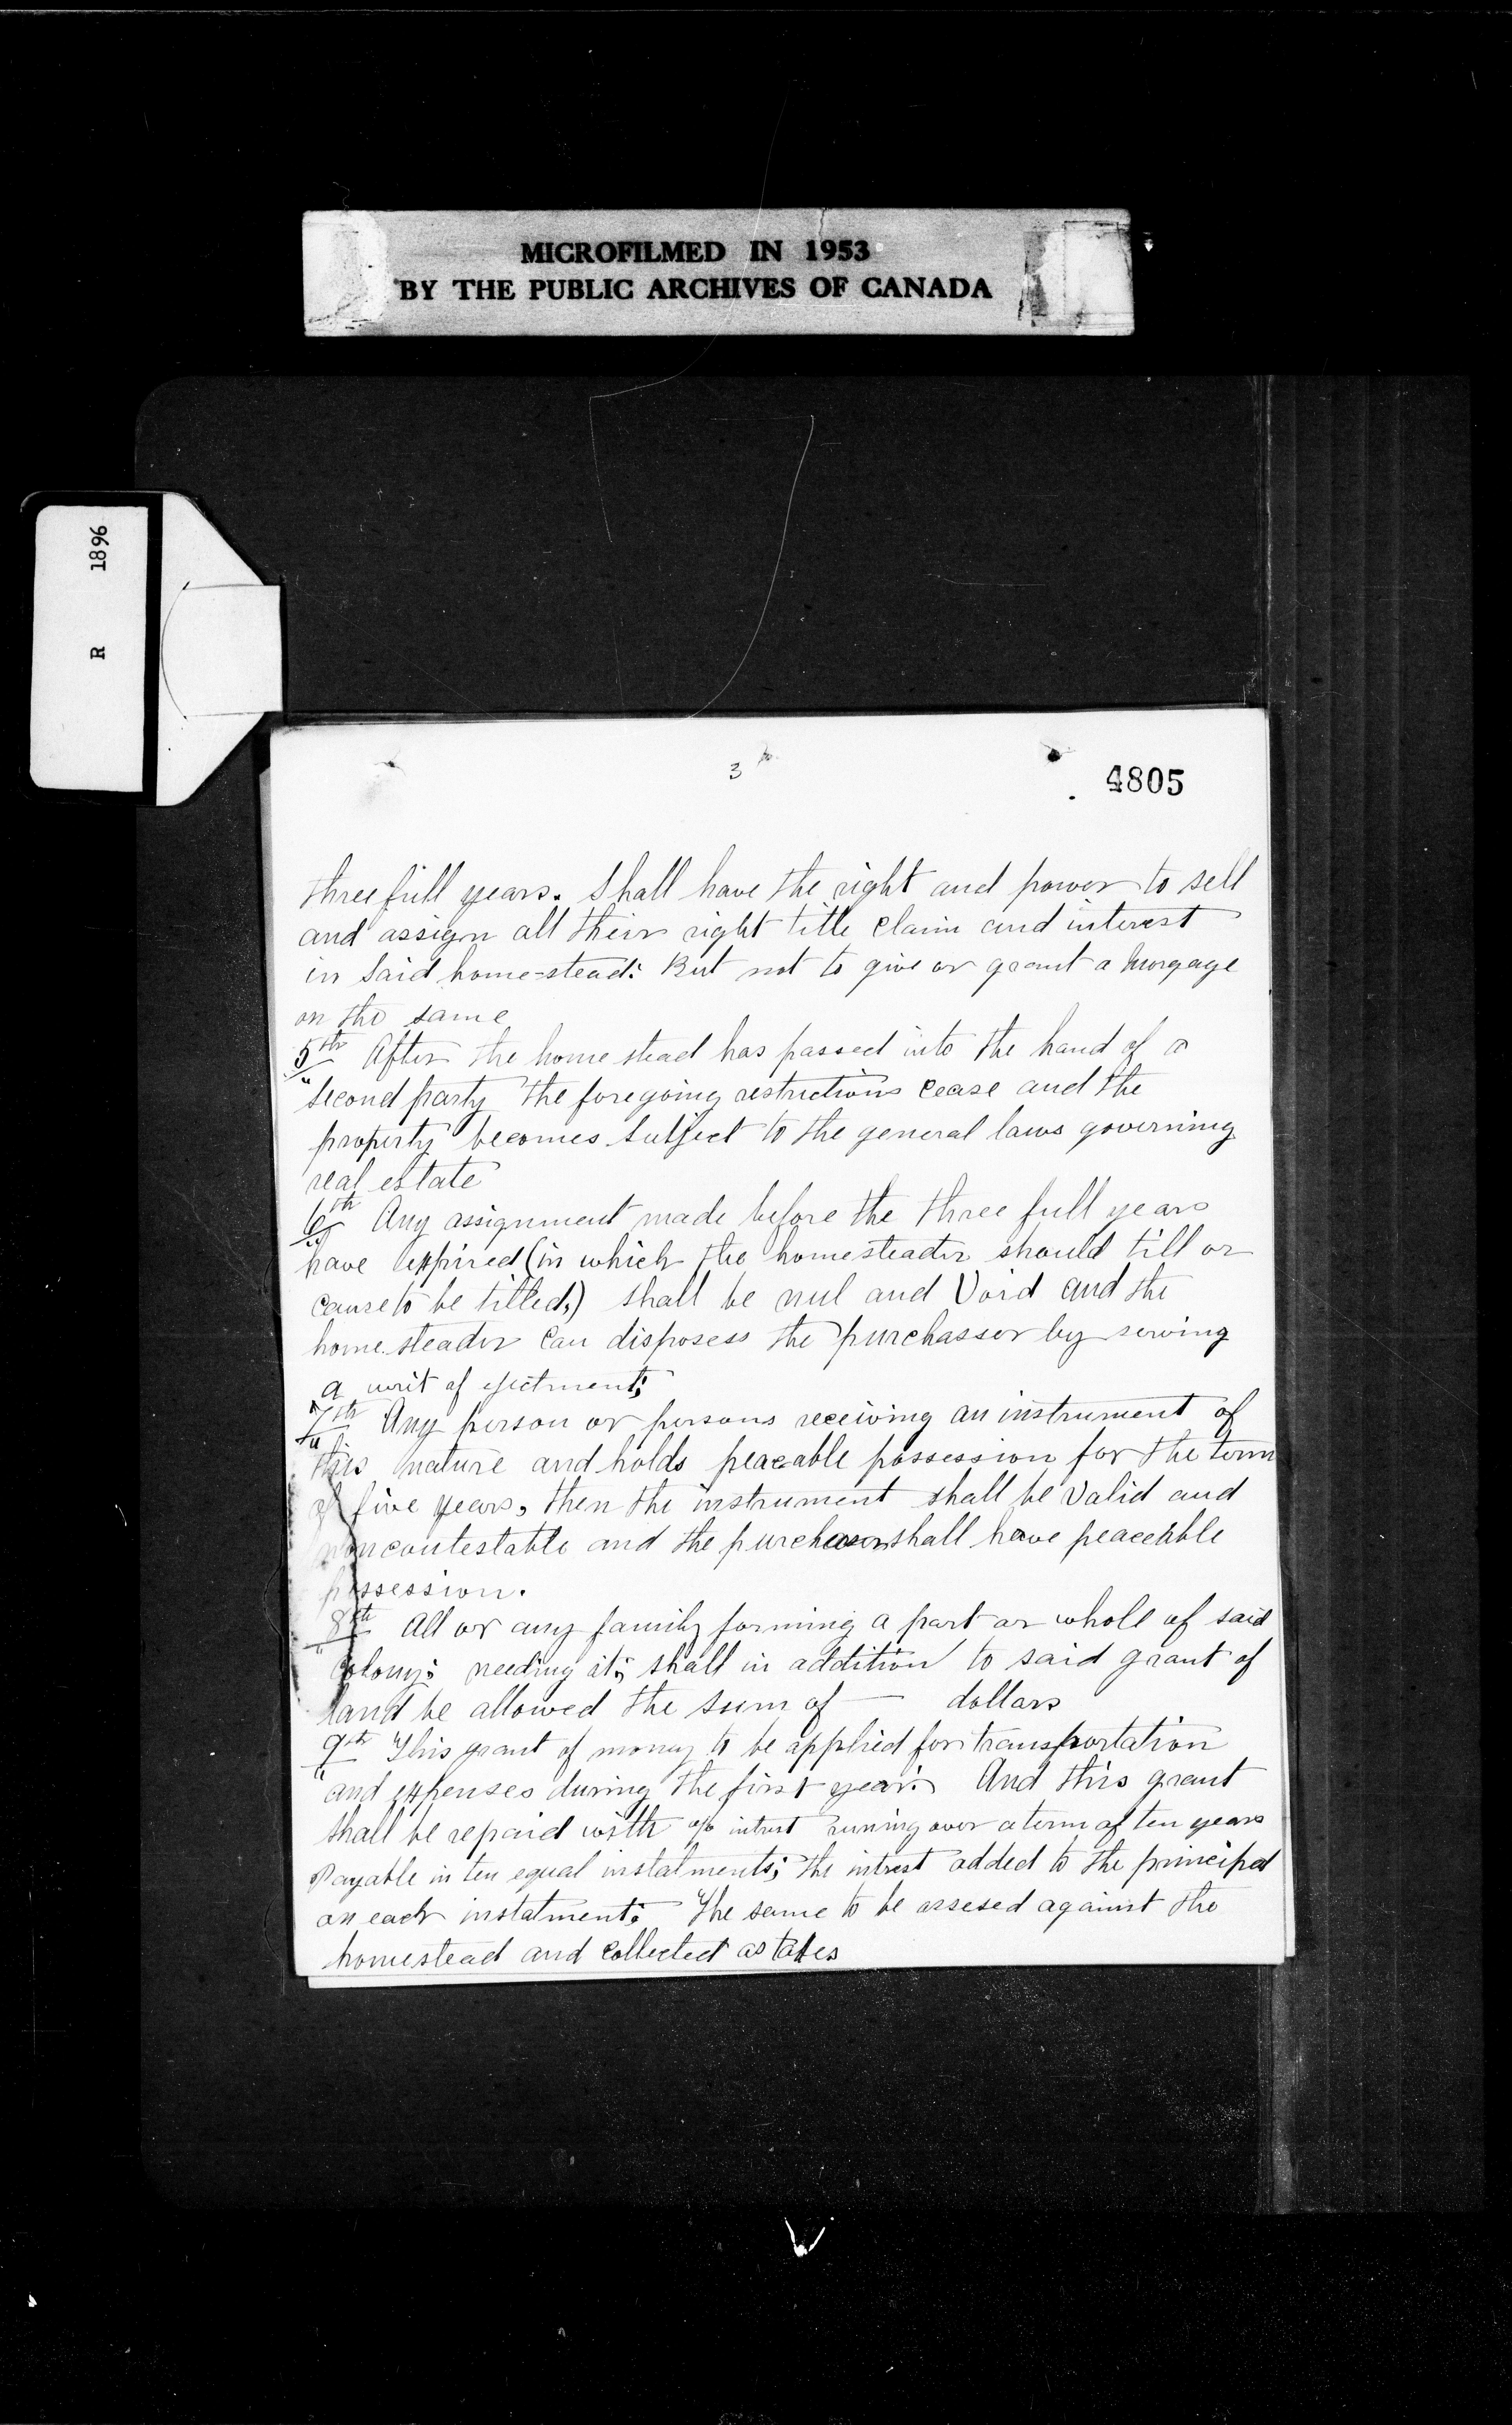 MICROFILMED IN 1953
BY THE PUBLIC ARCHIVES OF CANADA
R 1896
3
4805
three full years. Shall have the right and power to sell
and assign all their right title claim and interest
in said home-stead: But not to give or grant a Morgage
on the same
5th After the home stead has passed into the hand of a
second party the foregoing restrictions cease and the
property becomes subject to the general laws governing
real estate
6th Any assignment made before the three full years
have expired (in which the homesteader should till or
cause to be tilled,) shall be nul and Void and the
home steader can disposess the purchasser by serving
a writ of ejectment;
7th Any person or persons receiving an instrument of
this nature and holds peaceable possession for the term
of five years, then the instrument shall be valid and
noncontestable and the purchaser shall have peaceable
possession.
8th All or any family forming a part or whole of said
colony: needing it; shall in addition to said grant of
land be allowed the sum of — dollars
9th This grant of money to be applied for transportation
and expenses during the first year: And this grant
shall be repaid with % intrest runing over a term of ten years
Payable in ten equal instalments; the intrest added to the principal
on each instalment: The same to be assesed against the
homestead and collected as taxes